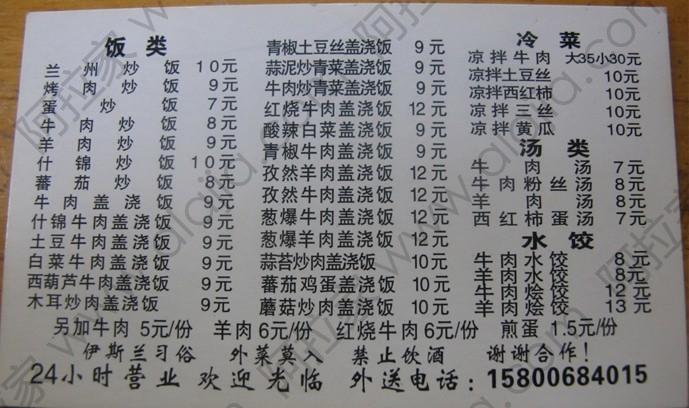 饭类
兰州炒饭 10元
烤肉炒饭 9元
蛋炒饭 7元
牛肉炒饭 8元
羊肉炒饭 9元
什锦炒饭 10元
蕃茄炒饭 8元
牛肉盖浇饭 9元
什锦牛肉盖浇饭 9元
土豆牛肉盖浇饭 9元
白菜牛肉盖浇饭 9元
西葫芦牛肉盖浇饭 9元
木耳炒肉盖浇饭 9元
青椒土豆丝盖浇饭 9元
蒜泥炒青菜盖浇饭 9元
牛肉炒青菜盖浇饭 9元
红烧牛肉盖浇饭 12元
酸辣白菜盖浇饭 9元
青椒牛肉盖浇饭 9元
孜然羊肉盖浇饭 12元
孜然牛肉盖浇饭 12元
葱爆牛肉盖浇饭 12元
葱爆羊肉盖浇饭 12元
蒜苔炒肉盖浇饭 10元
蕃茄鸡蛋盖浇饭 10元
蘑菇炒肉盖浇饭 10元
冷菜
凉拌牛肉 大35小30元
凉拌土豆丝 10元
凉拌西红柿 10元
凉拌三丝 10元
凉拌黄瓜 10元
汤类
牛肉汤 7元
牛肉粉丝汤 8元
羊肉汤 8元
西红柿蛋汤 7元
水饺
牛肉水饺 8元
羊肉水饺 8元
牛肉烩饺 12元
羊肉烩饺 13元
另加牛肉 5元/份 羊肉6元/份 红烧牛肉6元/份 煎蛋 1.5元/份
伊斯兰习俗 外菜莫入 禁止饮酒 谢谢合作!
24小时营业 欢迎光临 外送电话:15800684015
阿拉家 www.alajia.com